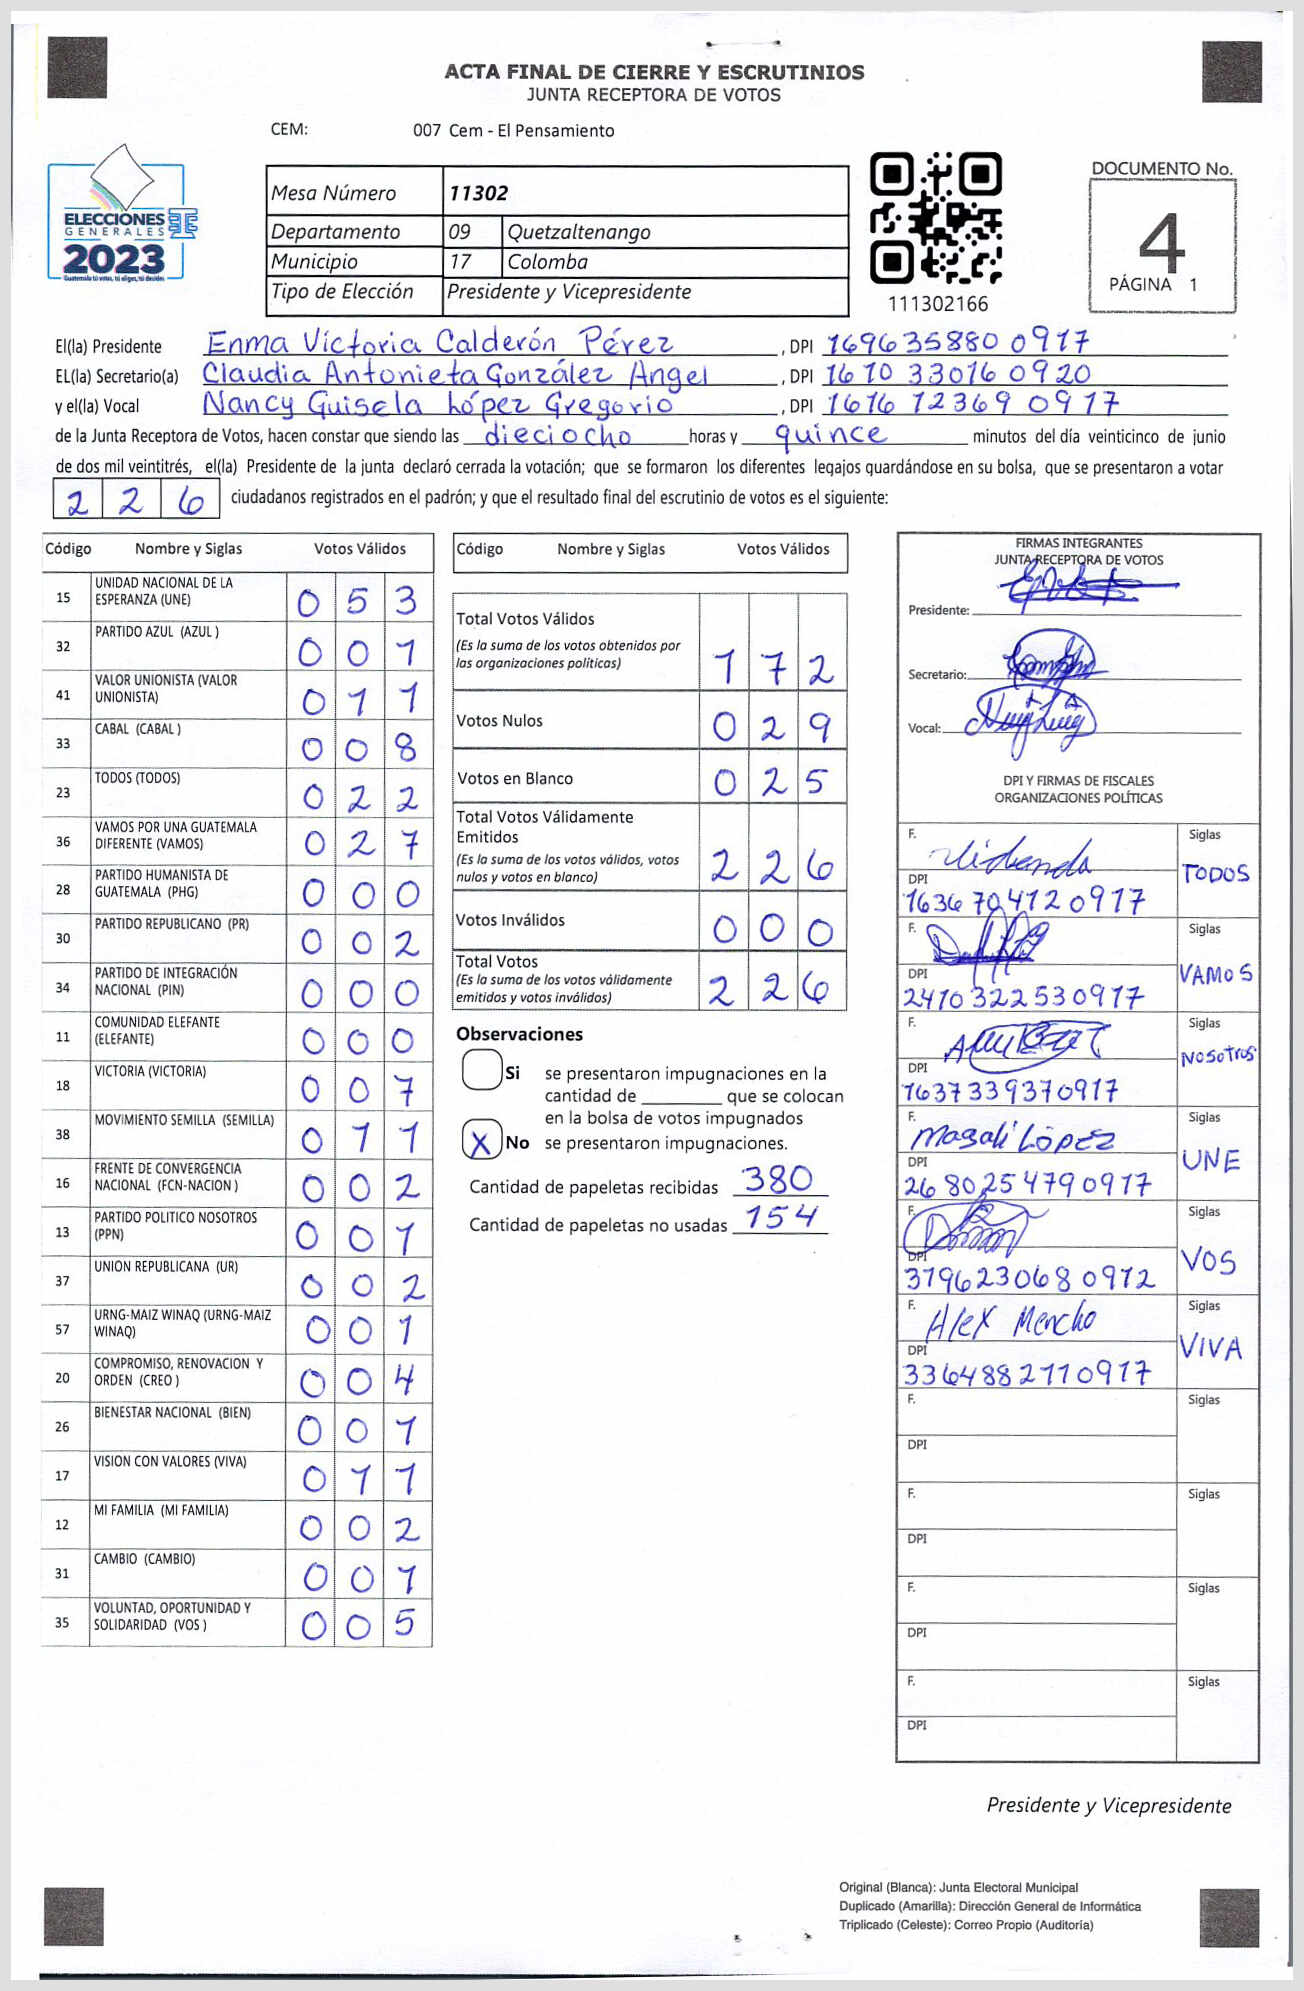 ACTA FINAL DE CIERRE Y ESCRUTINIOS
JUNTA RECEPTORA DE VOTOS
CEM: 007 Cem - El Pensamiento
ELECCIONES
GENERALES
2023
Guatemala tú votas, tú eliges, tú decides
Mesa Número 11302
Departamento 09 Quetzaltenango
Municipio 17 Colomba
Tipo de Elección Presidente y Vicepresidente
111302166
DOCUMENTO No.
4
PÁGINA 1
El(la) Presidente Enma Victoria Calderón Pérez, DPI 169635880 0917
EL(la) Secretario(a) Claudia Antonieta González Angel, DPI 1610 33016 0920
y el(la) Vocal Nancy Guisela López Gregorio, DPI 1616 12369 0917
de la Junta Receptora de Votos, hacen constar que siendo las dieciocho horas y quince minutos del día veinticinco de junio
de dos mil veintitrés, el(la) Presidente de la junta declaró cerrada la votación; que se formaron los diferentes legajos guardándose en su bolsa, que se presentaron a votar
226 ciudadanos registrados en el padrón; y que el resultado final del escrutinio de votos es el siguiente:
Código Nombre y Siglas Votos Válidos
15 UNIDAD NACIONAL DE LA ESPERANZA (UNE) 053
32 PARTIDO AZUL (AZUL ) 001
41 VALOR UNIONISTA (VALOR UNIONISTA) 011
33 CABAL (CABAL ) 008
23 TODOS (TODOS) 022
36 VAMOS POR UNA GUATEMALA DIFERENTE (VAMOS) 027
28 PARTIDO HUMANISTA DE GUATEMALA (PHG) 000
30 PARTIDO REPUBLICANO (PR) 002
34 PARTIDO DE INTEGRACIÓN NACIONAL (PIN) 000
11 COMUNIDAD ELEFANTE (ELEFANTE) 000
18 VICTORIA (VICTORIA) 007
38 MOVIMIENTO SEMILLA (SEMILLA) 011
16 FRENTE DE CONVERGENCIA NACIONAL (FCN-NACION ) 002
13 PARTIDO POLITICO NOSOTROS (PPN) 001
37 UNION REPUBLICANA (UR) 002
57 URNG-MAIZ WINAQ (URNG-MAIZ WINAQ) 001
20 COMPROMISO, RENOVACION Y ORDEN (CREO ) 004
26 BIENESTAR NACIONAL (BIEN) 001
17 VISION CON VALORES (VIVA) 011
12 MI FAMILIA (MI FAMILIA) 002
31 CAMBIO (CAMBIO) 001
35 VOLUNTAD, OPORTUNIDAD Y SOLIDARIDAD (VOS ) 005
Código Nombre y Siglas Votos Válidos
Total Votos Válidos
(Es la suma de los votos obtenidos por
las organizaciones políticas) 172
Votos Nulos 029
Votos en Blanco 025
Total Votos Válidamente
Emitidos
(Es la suma de los votos válidos, votos
nulos y votos en blanco) 226
Votos Inválidos 000
Total Votos
(Es la suma de los votos válidamente
emitidos y votos inválidos) 226
Observaciones
Si se presentaron impugnaciones en la
cantidad de ________ que se colocan
en la bolsa de votos impugnados
X No se presentaron impugnaciones.
Cantidad de papeletas recibidas 380
Cantidad de papeletas no usadas 154
FIRMAS INTEGRANTES
JUNTA RECEPTORA DE VOTOS
Presidente:
Secretario:
Vocal:
DPI Y FIRMAS DE FISCALES
ORGANIZACIONES POLÍTICAS
F. Siglas
TODOS
DPI
1636 704120917
F. Siglas
VAMOS
DPI
2410322530917
F. Siglas
NOSOTROS
DPI
1637339370917
F. Magali López Siglas
UNE
DPI
2680254790917
F. Siglas
VOS
DPI
3196230680912
F. Alex Mencho Siglas
VIVA
DPI
3364882110917
F. Siglas
DPI
F. Siglas
DPI
F. Siglas
DPI
F. Siglas
DPI
Presidente y Vicepresidente
Original (Blanca): Junta Electoral Municipal
Duplicado (Amarilla): Dirección General de Informática
Triplicado (Celeste): Correo Propio (Auditoría)